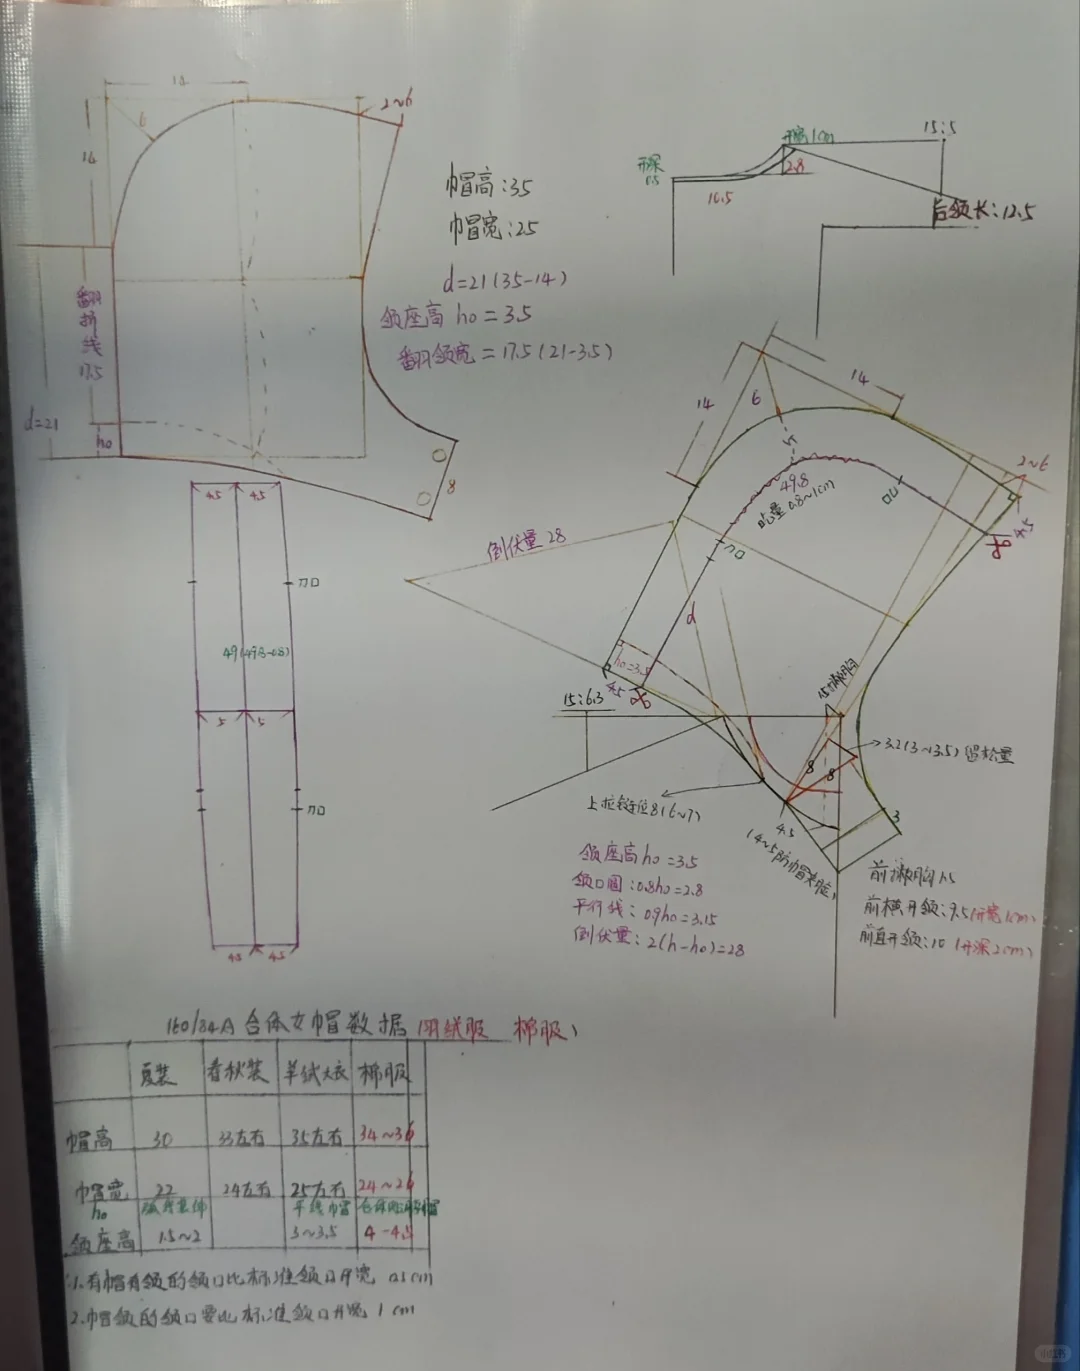 14
6
14
2~6
翻折线17.5
d=21
ho
8
帽高:35
帽宽:25
d=21(35-14)
领座高 ho=3.5
翻领宽=17.5(21-3.5)
开宽1cm
15:5
开深
0.5
2.8
10.5
后领长:12.5
14
14
6
2~6
49.8
吃量0.8~1cm
刀口
4.5
刀口
d
倒伏量28
ho=3.5
4.5
15:6.3
3.2(3~3.5)留松量
8
8
上拉链位8(6~7)
4.5
3
前撇胸1.5
前横开领:9.5(开宽1cm)
前直开领:10(开深2cm)
领座高ho=3.5
领口圆:0.8ho=2.8
平行线:0.9ho=3.15
倒伏量:2(h-ho)=28
4.5 4.5
刀口
49(49.8-0.8)
5 5
刀口
4.5 4.5
160/84A合体女帽数据(羽绒服 棉服)
夏装 春秋装 羊绒大衣 棉服
帽高 30 33左右 35左右 34~36
帽宽 22 24左右 25左右 24~26
ho
领座高 1.5~2 3~3.5 4-4.5
1.有帽有领的领口比标准领口开宽 0.5cm
2.帽领的领口要比标准领口开宽 1cm